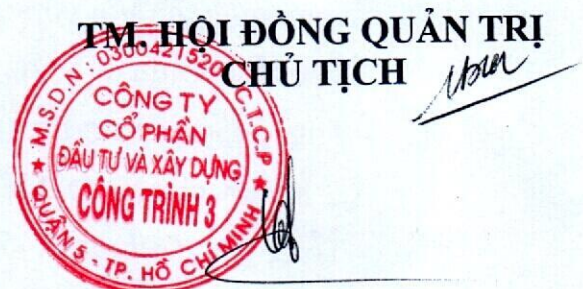 TM. HỘI ĐỒNG QUẢN TRỊ
CHỦ TỊCH
M.S.D.N : 0300421520 C.T.C.P
CÔNG TY
CỔ PHẦN
ĐẦU TƯ VÀ XÂY DỰNG
CÔNG TRÌNH 3
QUẬN 5 - TP. HỒ CHÍ MINH